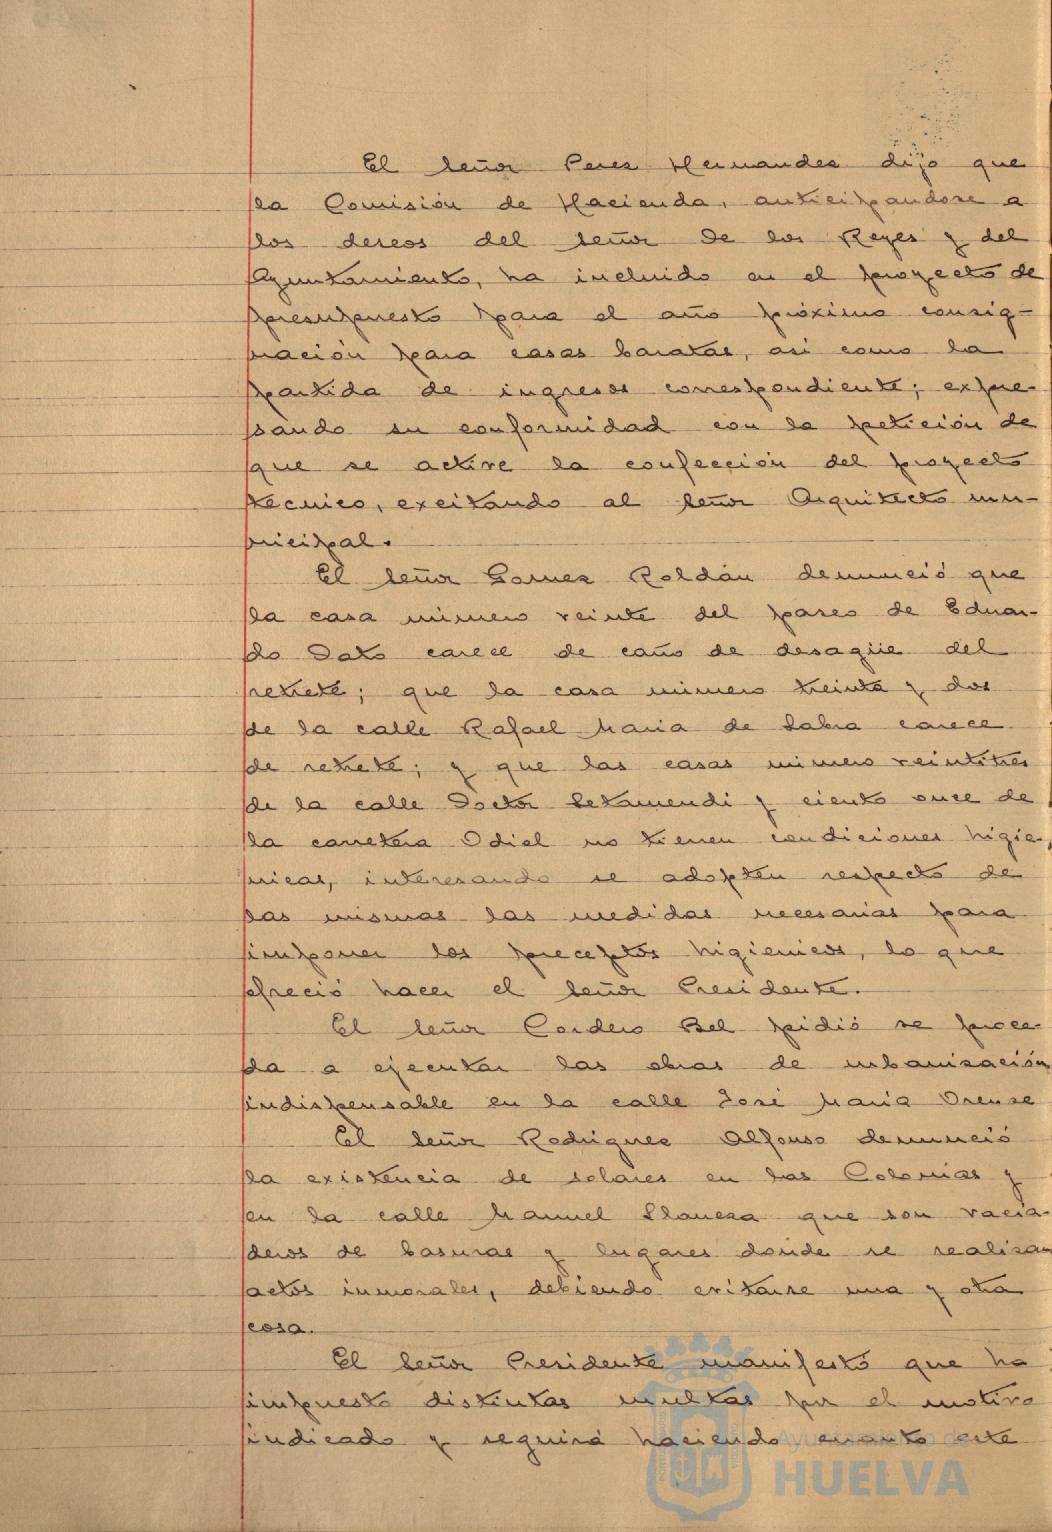 El señor Perez Hernandez dijo que
la Comisión de Hacienda, anticipandose a
los deseos del señor de los Reyes y del
Ayuntamiento, ha incluido en el proyecto de
presupuesto para el año próximo consig-
nación para casas baratas, asi como la
partida de ingresos correspondiente; expre-
sando su conformidad con la petición de
que se active la confección del proyecto
técnico, excitando al señor Arquitecto mu-
nicipal.
El señor Gomez Roldán denunció que
la casa número veinte del paseo de Eduar-
do Dato carece de caño de desagüe del
retrete; que la casa número treinta y dos
de la calle Rafael Maria de Labra carece
de retrete; y que las casas número veintitres
de la calle Doctor Letamendi y ciento once de
la carretera Odiel no tienen condiciones higie-
nicas, interesando se adopten respecto de
las mismas las medidas necesarias para
imponer los preceptos higienicos, lo que
ofreció hacer el señor Presidente.
El señor Cordero Bel pidió se proce-
da a ejecutar las obras de urbanización
indispensable en la calle José Maria Orense
El señor Rodriguez Alfonso denunció
la existencia de solares en las Colonias y
en la calle Manuel Llaneza que son vacia-
deros de basuras y lugares donde se realizan
actos inmorales, debiendo evitarse una y otra
cosa.
El señor Presidente manifestó que ha
impuesto distintas multas por el motivo
indicado y seguirá haciendo cuanto este
Ayuntamiento de
HUELVA